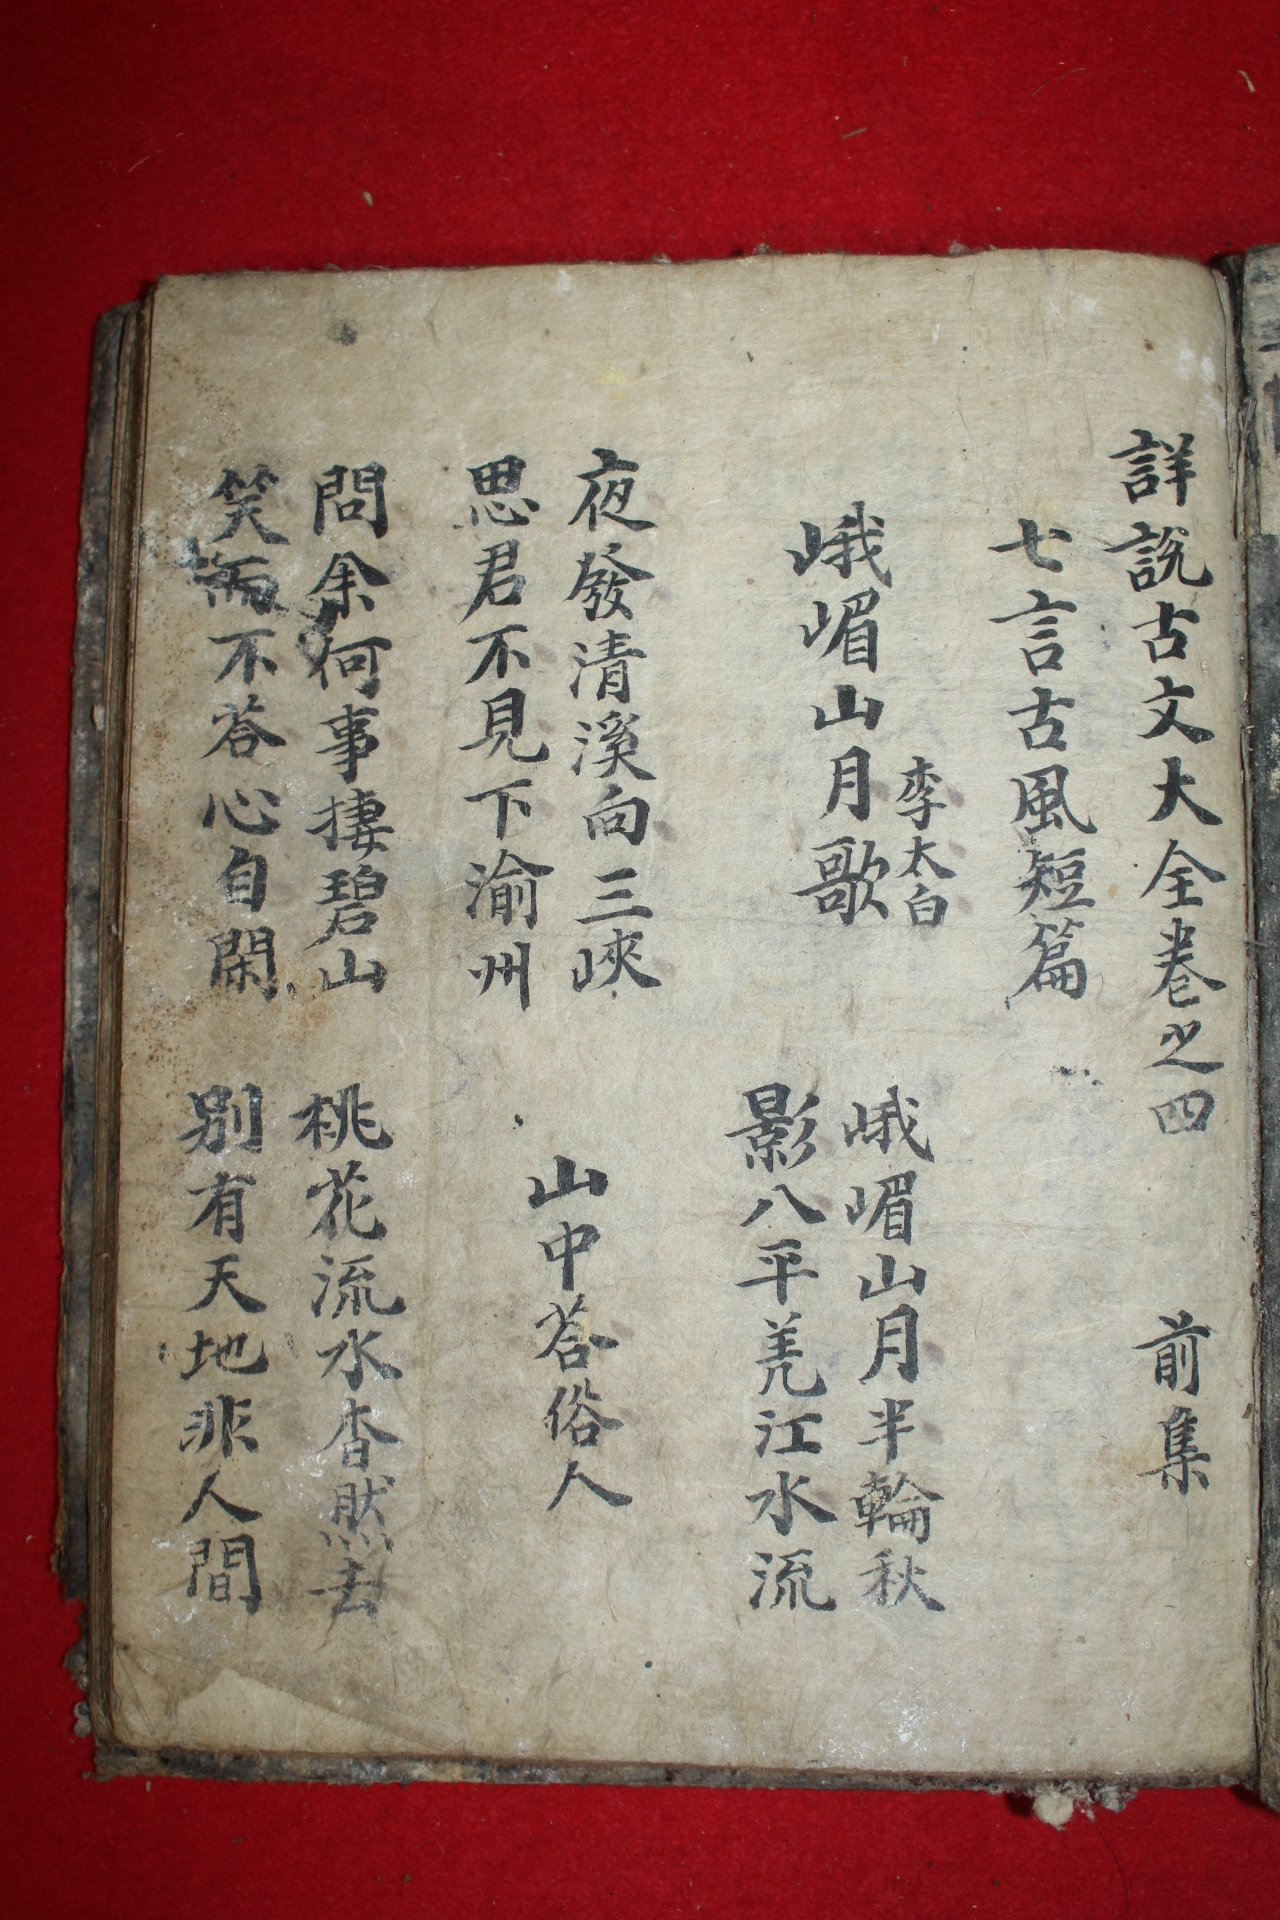 詳說古文大全卷之四 前集
七言古風短篇
峨嵋山月歌 李太白
峨嵋山月半輪秋
影八平羌江水流
夜發清溪向三峽
思君不見下渝州
山中荅俗人
問余何事捿碧山
桃花流水杳然去
笑而不荅心自閑
別有天地非人間